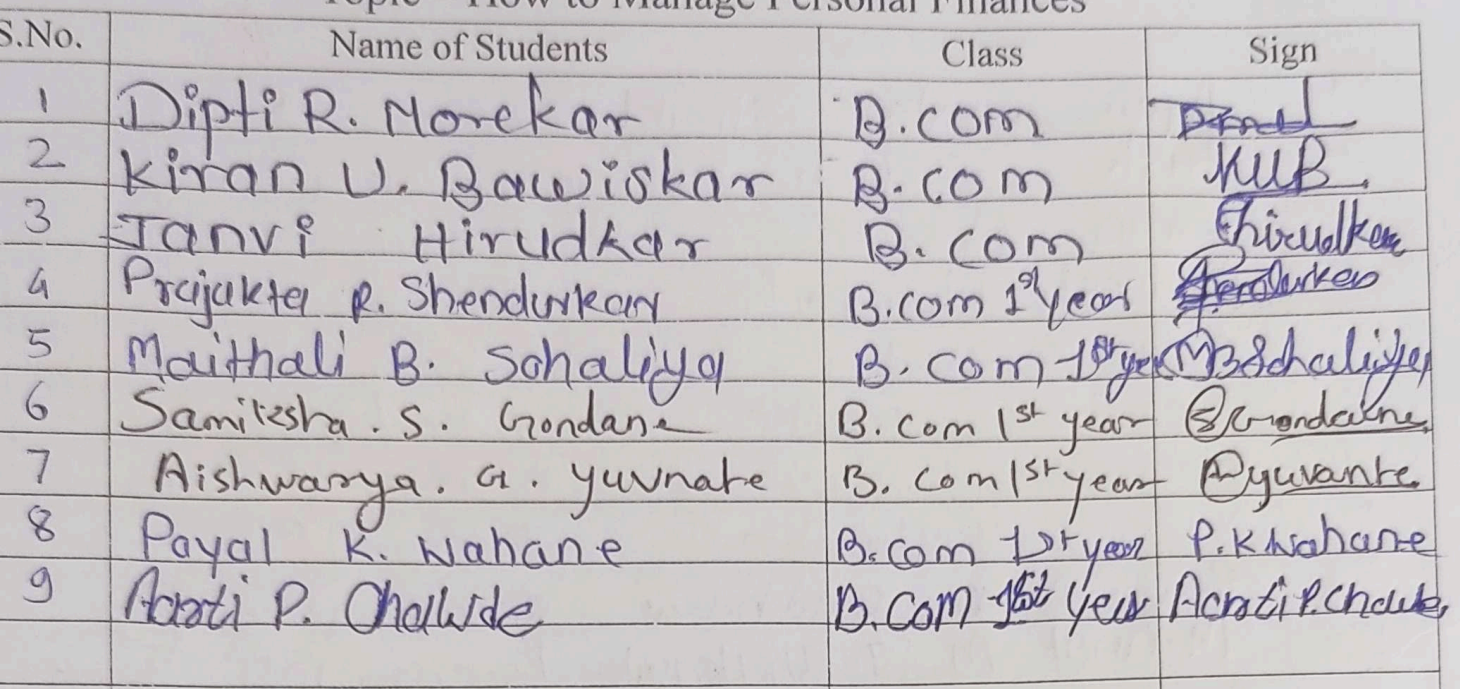 Topic - How to Manage Personal Finances
S.No. Name of Students Class Sign
1 Dipti R. Morekar B.com
2 Kiran U. Bawiskar B.com KUB.
3 Janvi Hirudkar B. com Jhirudkar
4 Prajakta R. Shendurkar B.com 1st year
5 Maithali B. Sahaliya B. com 1st year MBSahaliya
6 Samiksha . S. Gondane B. com 1st year SGondane
7 Aishwarya. G. yuvnate B. com 1st year Ayuvante
8 Payal K. Wahane B.com 1st year P.K Wahane
9 Aarti P. Chawde B.com 1st year Aarti P. Chawde